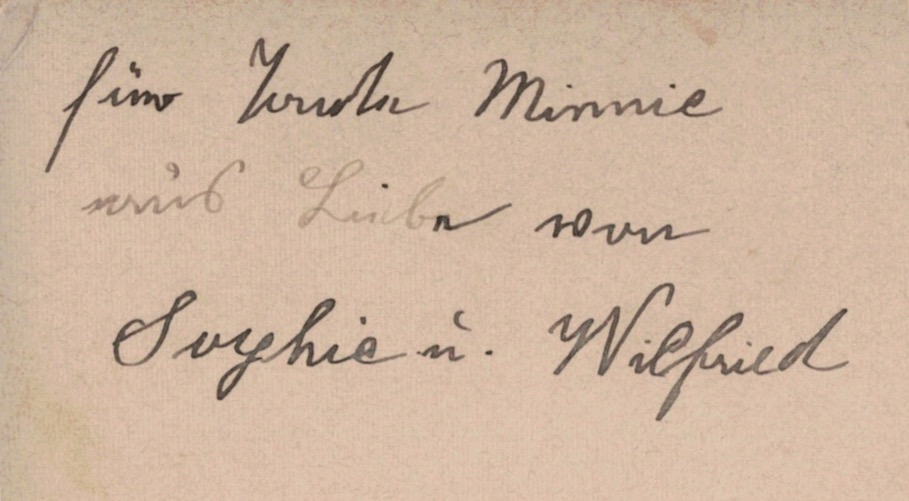 für Tante Minnie
aus Liebe von
Sophie u. Wilfried